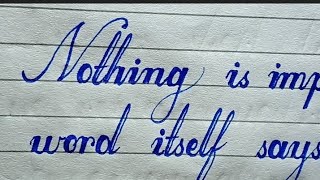 Nothing is imp
word itself says